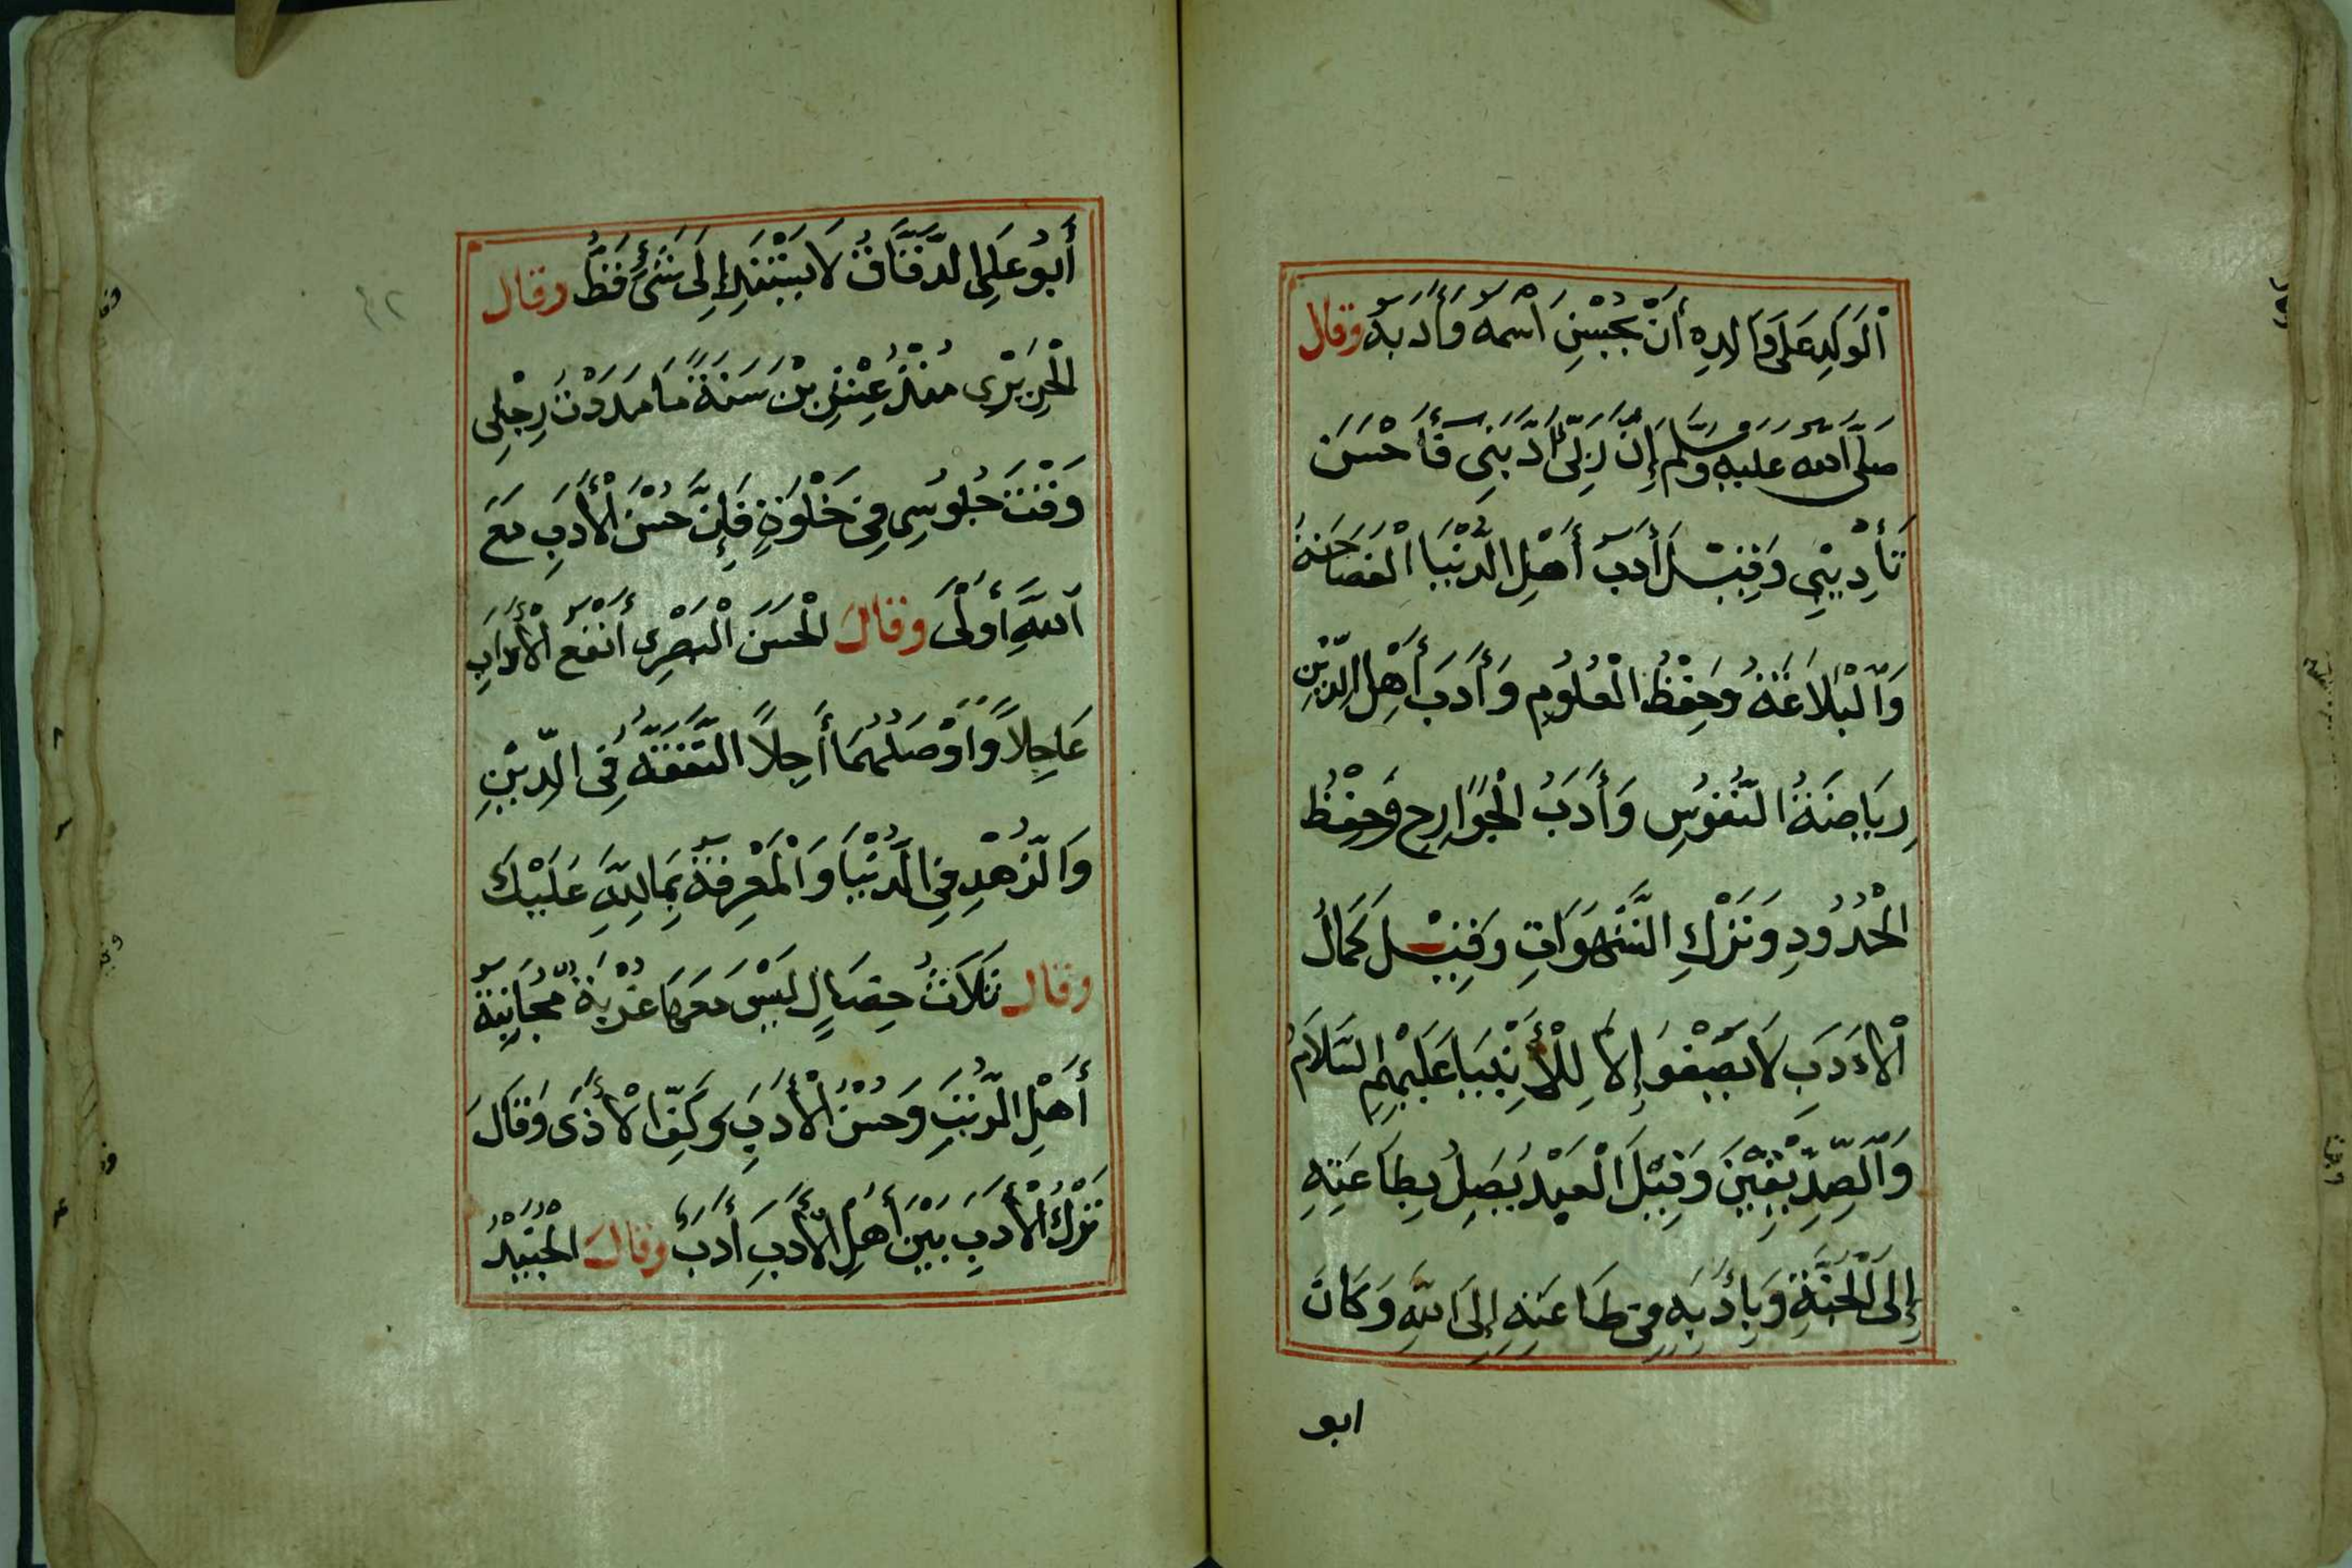 اَلْوَلَدِ عَلَى وَالِدِهِ أَنْ يُحْسِنَ اسْمَهُ وَأَدَبَهُ وقال
صَلَّى اَللَّه عليه وَسَلَّم إِنَّ رَبِّي أَدَّبَنِي فَأَحْسَنَ
تَأْدِيبِي وَقِيْلَ أَدَبُ أَهْلِ الدُّنْيَا الْفَصَاحَةُ
وَالْبَلَاغَةُ وَحِفْظُ الْعُلُومِ وَأَدَبَ أَهْلِ الدِّيْنِ
رِيَاضَةُ النُّفُوسِ وَأَدَبُ الْجَوَارِحِ وَحِفْظُ
الْحُدُودِ وَتَرْكِ الشَّهَوَاتِ وَقِيْلَ كَمَالُ
اْلأَدَبِ لَا يَصْفُو إِلَّا لِلْأَنْبِيَا عَلَيْهِمُ السَّلَامُ
وَالصِّدِّيْقِيْنَ وَقِيْلَ الْعَبْدُ يَصِلُ بِطَاعَتِهِ
إِلَى الْجَنَّةِ وَبِأَدَبِهِ فِي طَاعَتِهِ إِلَى اللَّهِ وَكَانَ
ابو
أَبُو عَلِي الدَّقَّاقُ لَا يَسْتَنِدُ إِلَى شَيْءٍ قَطُّ وقال
الْجَرِيْرِي مُنْذُ عِشْرِيْنَ سَنَةً مَا مَدَدْتُ رِجْلِي
وَقْتَ جُلُوسِي فِي خَلْوَةٍ فَإِنَّ حُسْنَ الْأَدَبِ مَعَ
اللَّهِ أَوْلَى وقال الْحَسَنَ الْبَصْرِي أَنْفَعُ الْأَدَابِ
عَاجِلًا وَاَوْصَلُهُمَا أَجِلًا التَّفَقُّهُ فِي الدِّيْنِ
وَالزُّهْدِ فِي الدُّنْيَا وَالْمَعْرِفَةُ بِمَا لِلَّهِ عَلَيْكَ
وقال ثَلَاثُ خِصَالٍ لَيْسَ مَعَهَا غُرْبَةٌ مُجَانَبَةُ
أَهْلِ الرِّيَبِ وَحُسْنُ الْأَدَبِ وَكَفِّ الْأَذَى وَقَالَ
تَرْكُ الْأَدَبِ بَيْنَ أَهْلِ الْأَدَبِ أَدَبٌ وقال الْجُنَيْدُ